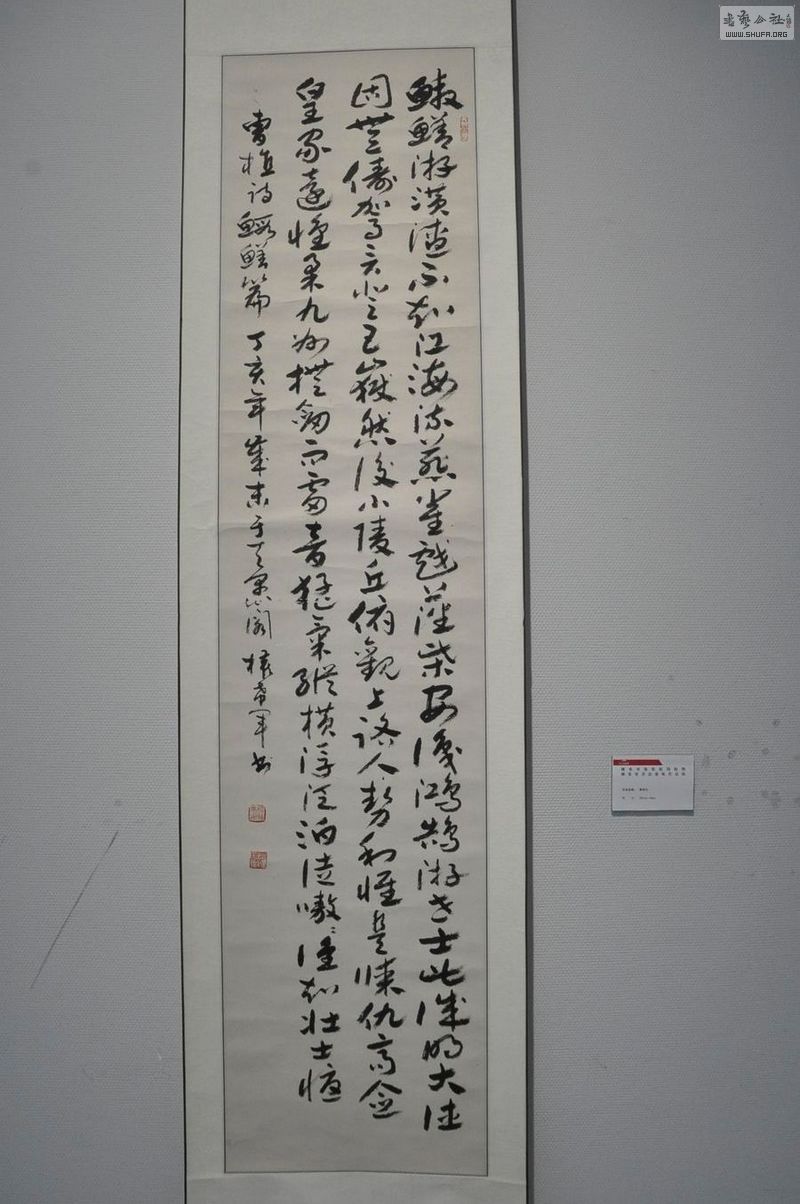 鰕鱔游潢潦不知江海流燕雀戲藩柴安識鴻鵠游世士此誠明大德
固無儔駕言登五嶽然後小陵丘俯觀上路人勢利惟是謀仇高念
皇家遠懷柔九州撫劍而雷音猛氣縱橫浮泛泊徒嗷〻誰知壯士憂
曹植詩鰕鱔篇 丁亥年歲末于天 閣 希軍書
书艺公社
WWW.SHUFA.ORG